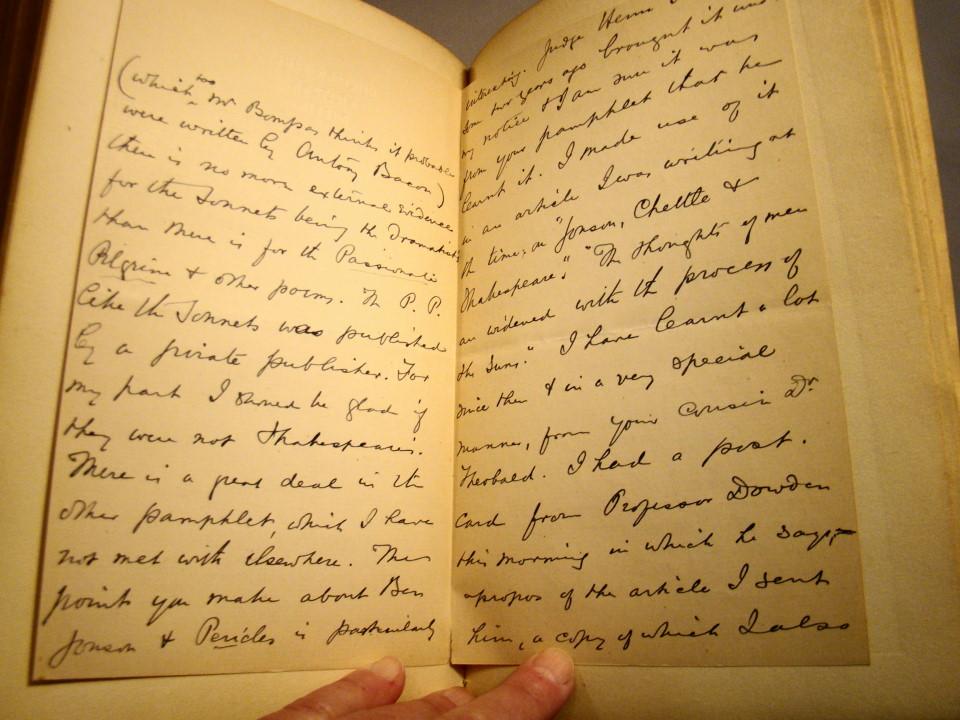 (which too Mr Bompas thinks it probable
were written by Antony Bacon)
there is no more external evidence
for the Sonnets being the Dramatist's
than there is for the Passionate
Pilgrim & other poems. The P. P.
like the Sonnets was published
by a private publisher. For
my part I should be glad if
they were not Shakespeare's.
There is a great deal in the
other pamphlet, which I have
not met with elsewhere. The
points you make about Ben
Jonson & Pericles is particularly
interesting. Judge
two years ago brought it under
my notice & I am sure it was
from your pamphlet that he
learnt it. I made use of it
in an article I was writing at
the time, on "Jonson, Chettle &
Shakespeare". "The thoughts of men
are widened with the process of
the Suns." I have learnt a lot
since then & in a very special
manner, from your Cousin Dr.
Theobald. I had a post-
card from Professor Dowden
this morning in which he says,-
apropos of the article I sent
him, a copy of which I also